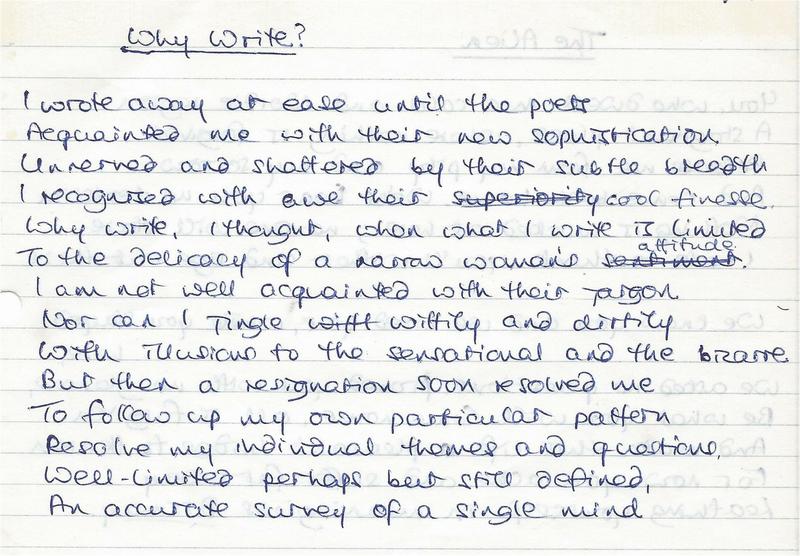 Why Write?
I wrote away at ease until the poets
Acquainted me with their new sophistication.
Unnerved and shattered by their subtle breadth
I recognised with awe their superiority cool finesse.
Why write, I thought, when what I write is limited
attitude.
To the delicacy of a narrow woman's sentiment.
I am not well acquainted with their jargon
Nor can I jingle witt wittily and dirtily
With illusions to the sensational and the bizarre
But then a resignation soon resolved me
To follow up my own particular pattern
Resolve my individual themes and questions,
Well-limited perhaps but still defined,
An accurate survey of a single mind